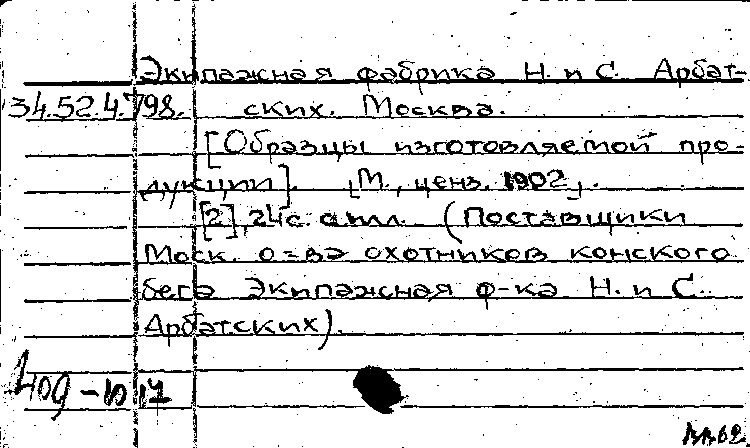 Экипажная фабрика Н. и С. Арбат-
34.52.4.798. ских. Москва.
[Образцы изготовляемой про-
дукции]. [М., ценз. 1902].
[2], 24 с. с илл. (Поставщики
Моск. о-ва охотников конского
бега Экипажная ф-ка Н. и С.
Арбатских).